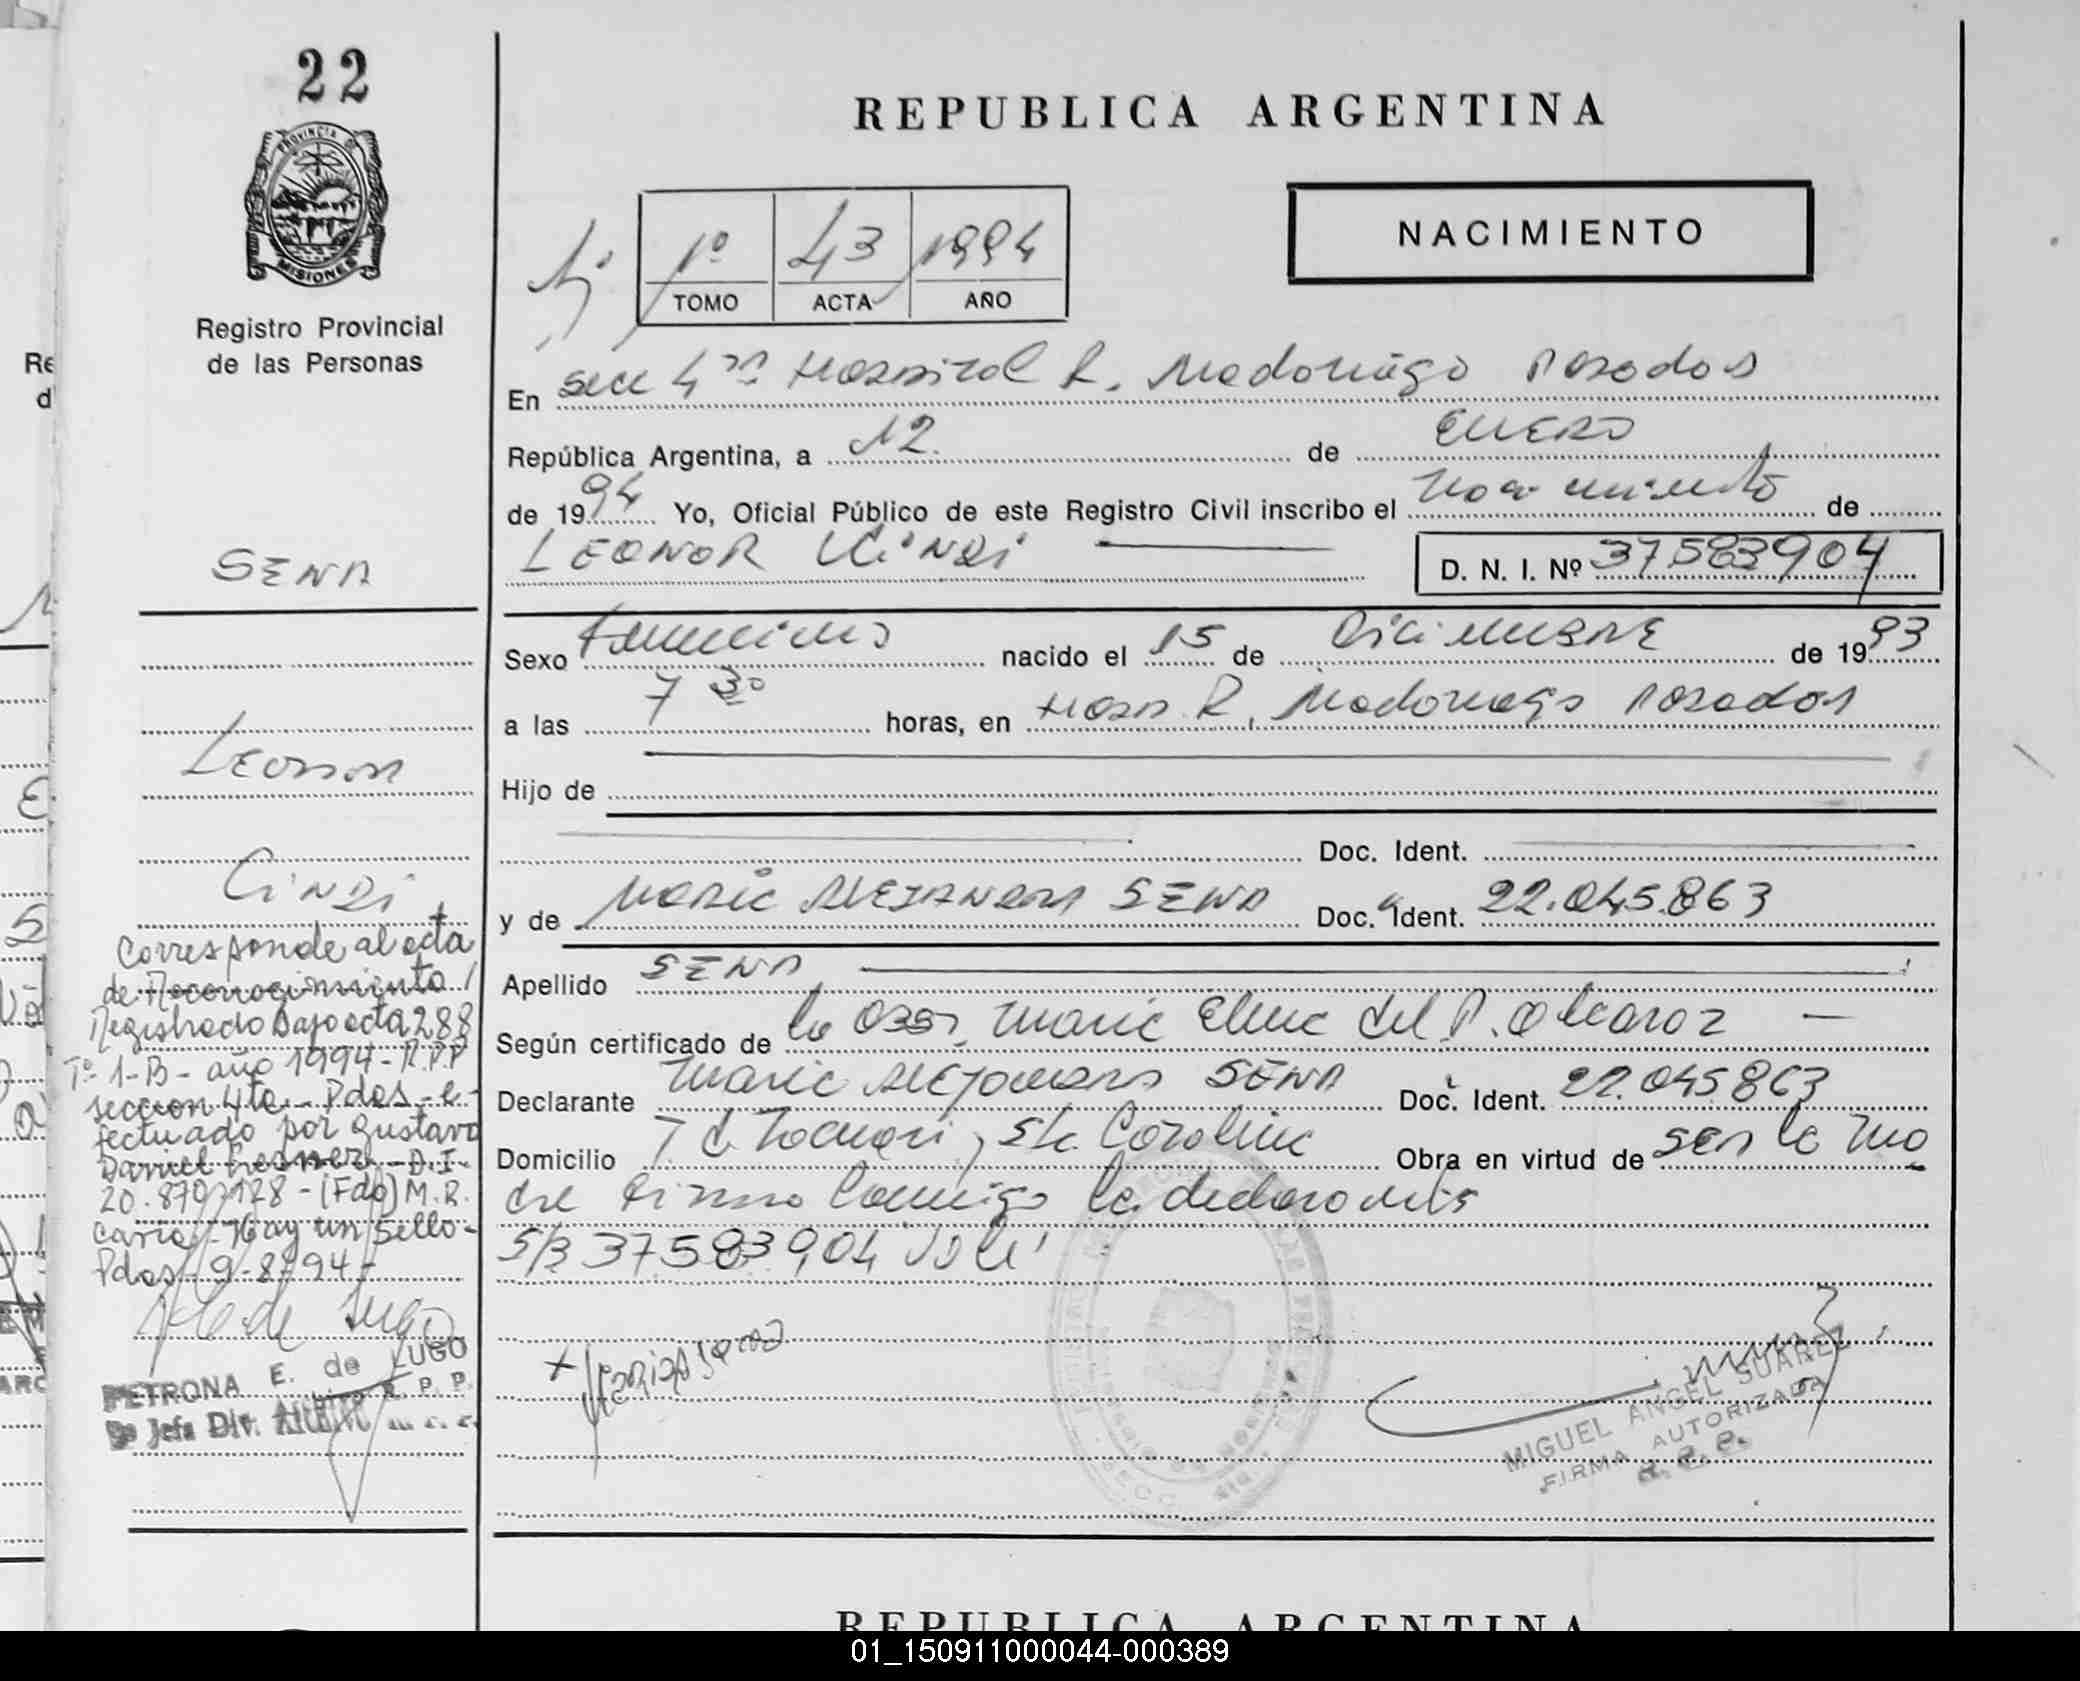 22
PROVINCIA DE
MISIONES
Registro Provincial
de las Personas
SENA
Leonor
Cindi
Corresponde al acta
de Reconocimiento
Registrado Bajo acta 288
Tº 1-B - año 1994 - R.P.P
seccion 4ta - Pdas - e-
fectuado por Gustavo
Daniel - D.I.
20.870.128 - (Fdo) M.R.
Hay un Sello -
Pdas - 9-8-94 -
PETRONA E. de LUGO
Jefa Div.
REPUBLICA ARGENTINA
NACIMIENTO
1º 43 1994
TOMO ACTA AÑO
En secc 4ta Hospital R. Madariaga Posadas
República Argentina, a 12 de ENERO
de 1994 Yo, Oficial Público de este Registro Civil inscribo el Nacimiento de
LEONOR CiNDi D. N. I. Nº 37583904
Sexo Femenino nacido el 15 de Diciembre de 1993
a las 7 30 horas, en Hosp. R. Madariaga Posadas
Hijo de
Doc. Ident.
y de Maria Alejandra SENA Doc. Ident. 22.045.863
Apellido SENA
Según certificado de la Obst. Maria Elena del P. Alcaraz
Declarante Maria Alejandra SENA Doc. Ident. 22.045863
Domicilio Sta. Carolina Obra en virtud de ser la ma
dre Firma Conmigo la declarante
S/B 37583904 Vale
+ Maria A Sena
MIGUEL ANGEL SUAREZ
FIRMA AUTORIZADA
R. P. P.
REPUBLICA ARGENTINA
01_150911000044-000389